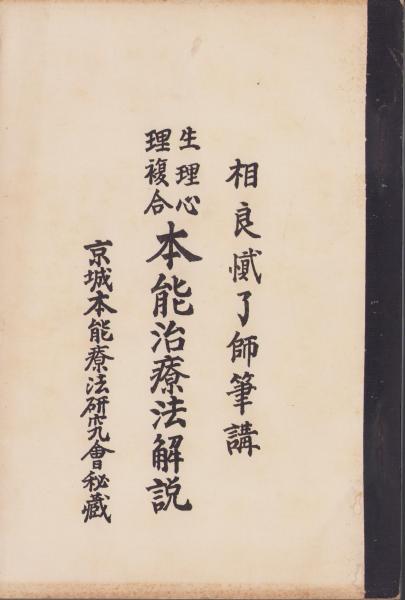 相良慨了師筆講
生理心
理複合
本能治療法解説
京城本能療法研究會秘藏